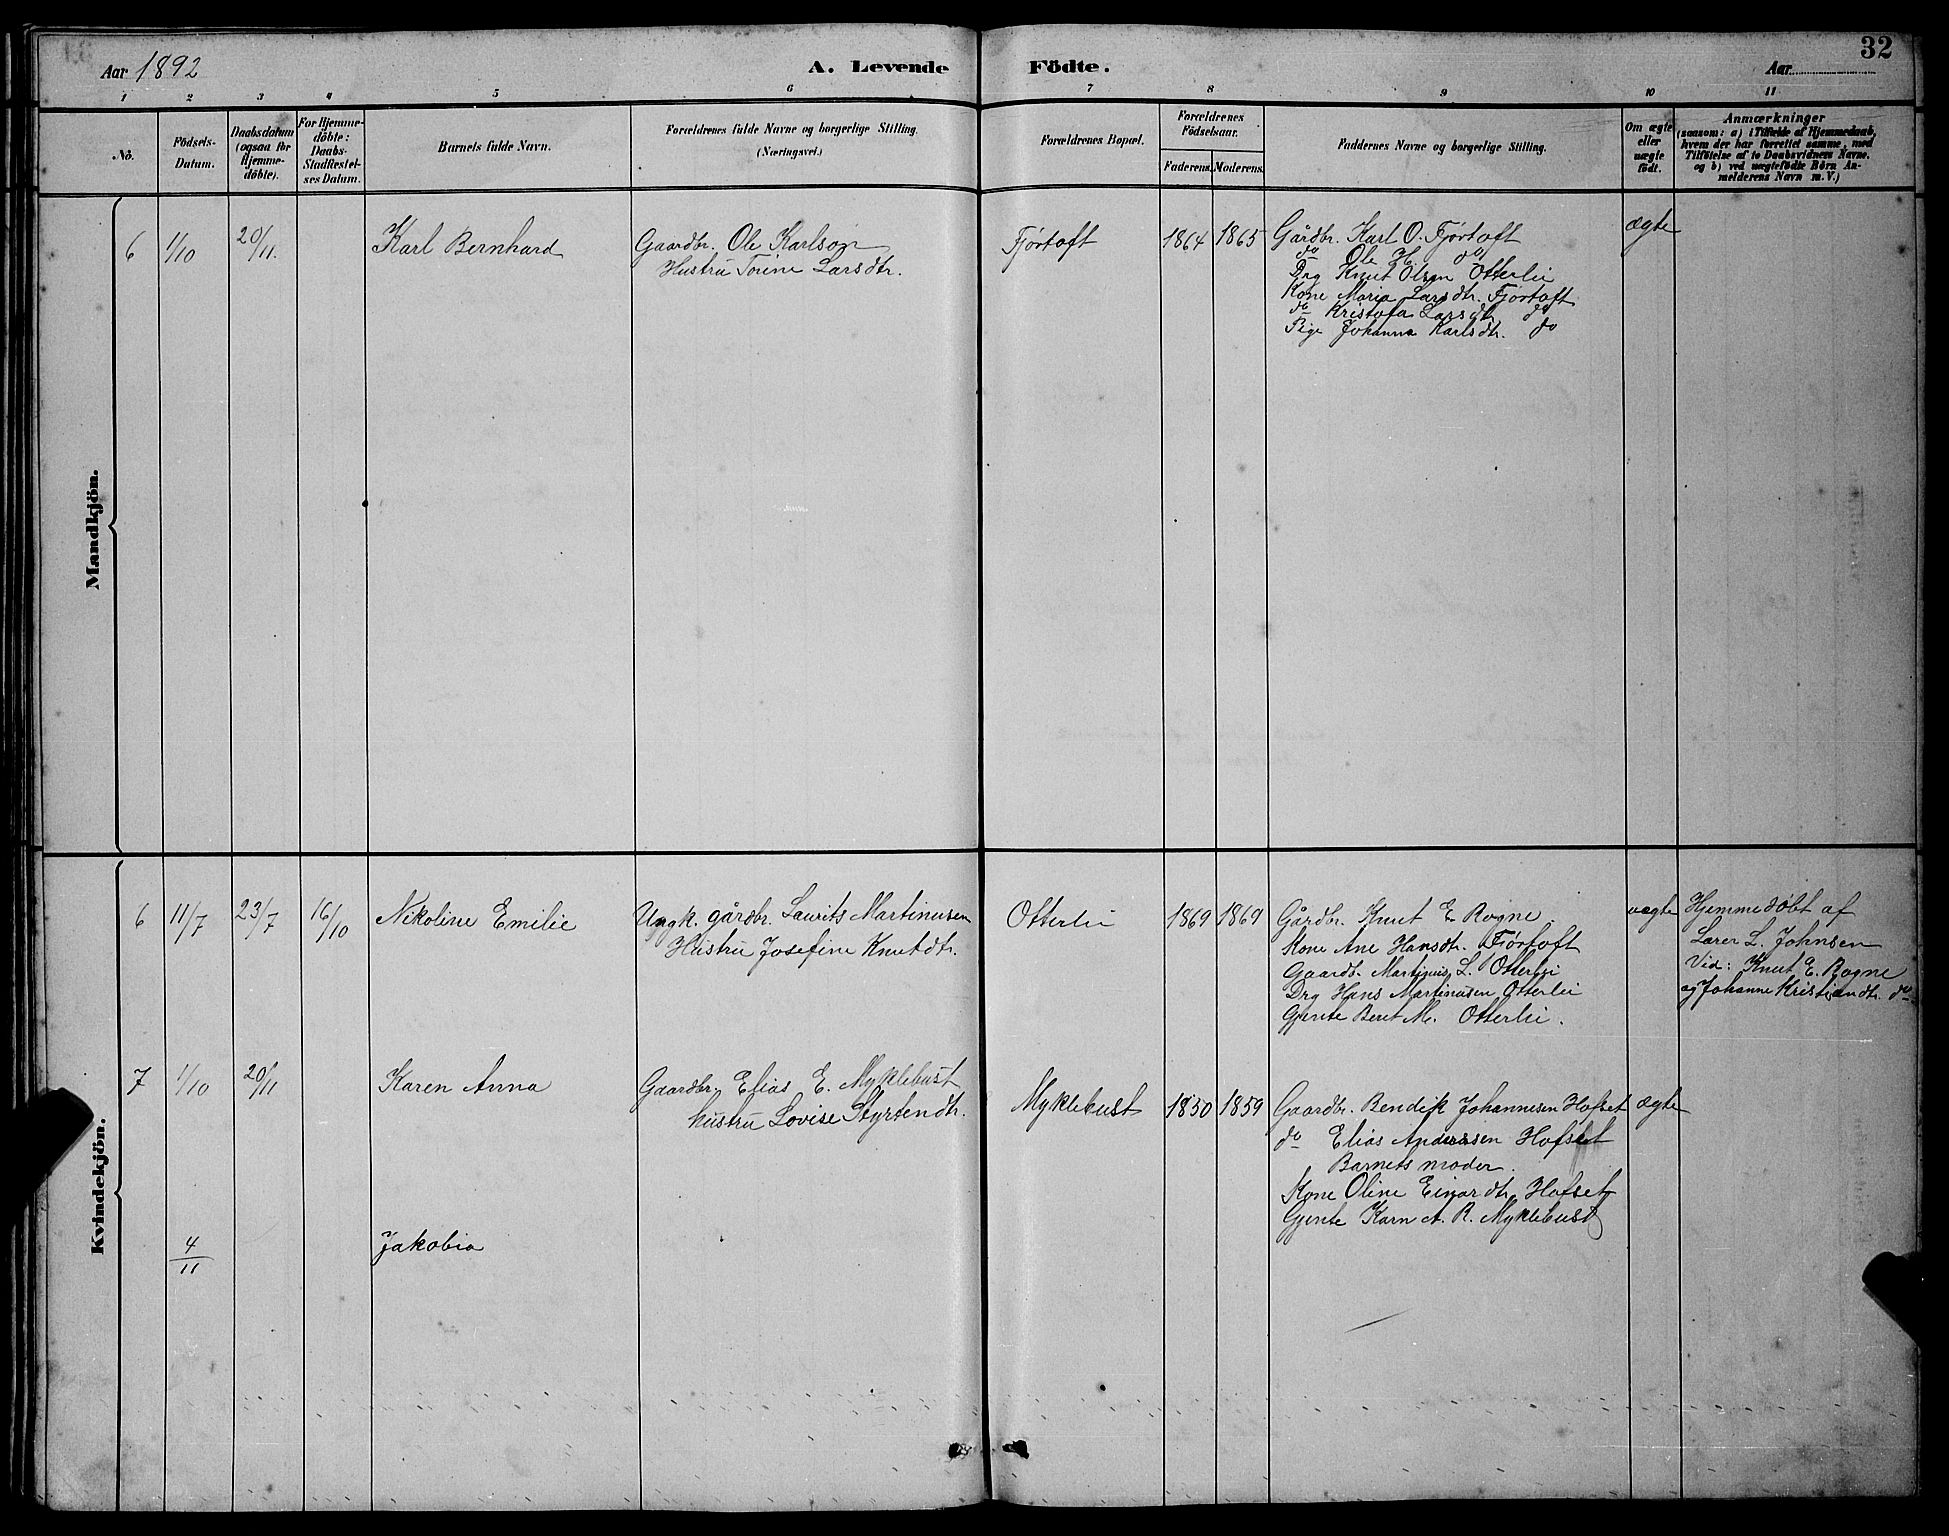 32
Aar 1892
A. Levende Födte.
Aar
1 2 3 4 5 6 7 8 9 10 11
No.
Födsels-
Datum.
Daabsdatum
(ogsaa for
Hjemme-
döbte).
For Hjemme-
döbte:
Daabs-
Stadfæstel-
ses Datum.
Barnets fulde Navn.
Forældrenes fulde Navne og borgerlige Stilling.
(Næringsvei.)
Forældrenes Bopæl.
Forældrenes
Födselsaar.
Faderens. Moderens.
Faddernes Navne og borgerlige Stilling.
Om ægte
eller
uægte
födt.
Anmærkninger
(saasom: a) i Tilfælde af Hjemmedaab,
hvem der har forrettet samme, med
Tilföielse af to Daabsvidners Navne.
og b) ved uægtefödte Börn An-
melderens Navn m. V.)
Mandkjön.
6 1/10 20/11. Karl Bernhard
Gaardbr. Ole Karlson
Hustru Torine Larsdtr.
Fjørtoft 1864 1865
Gårdbr. Karl O. Fjørtoft
do Ole H. do
Drg Knut Olsen Otterlei
Kone Maria Larsdtr. Fjørtoft
do Kristofa Larsdtr do
Pige Johanna Karlsdtr. do
ægte
Kvindekjön.
6 11/7 23/7 16/10 Nikoline Emilie
Ungk. gårdbr. Laurits Martinusen
Hustru Josefine Knutdtr.
Otterlei 1869 1869
Gårdbr. Knut E. Rogne.
Kone Ane Hansdtr. Fjørtoft
Gaardb. Martinus L. Otterlei
Drg Hans Martinusen Otterlei
Gjente Beret M. Otterlei.
uægte
Hjemmedøbt af
Lærer L. Johnsen
Vid: Knut E. Rogne
og Johanne Kristiandtr. do
7 1/10 20/11 Karen Anna
Gaardbr. Elias E. Myklebust
hustru Lovise Styrkendtr.
Myklebust 1850 1859
Gaardbr. Bendik Johannesen Hofset
do Elias Anderssen Hofset
Barnets moder.
Kone Oline Einardtr. Hofset
Gjente Karn A. R. Myklebust
ægte
4/11 Jakobia